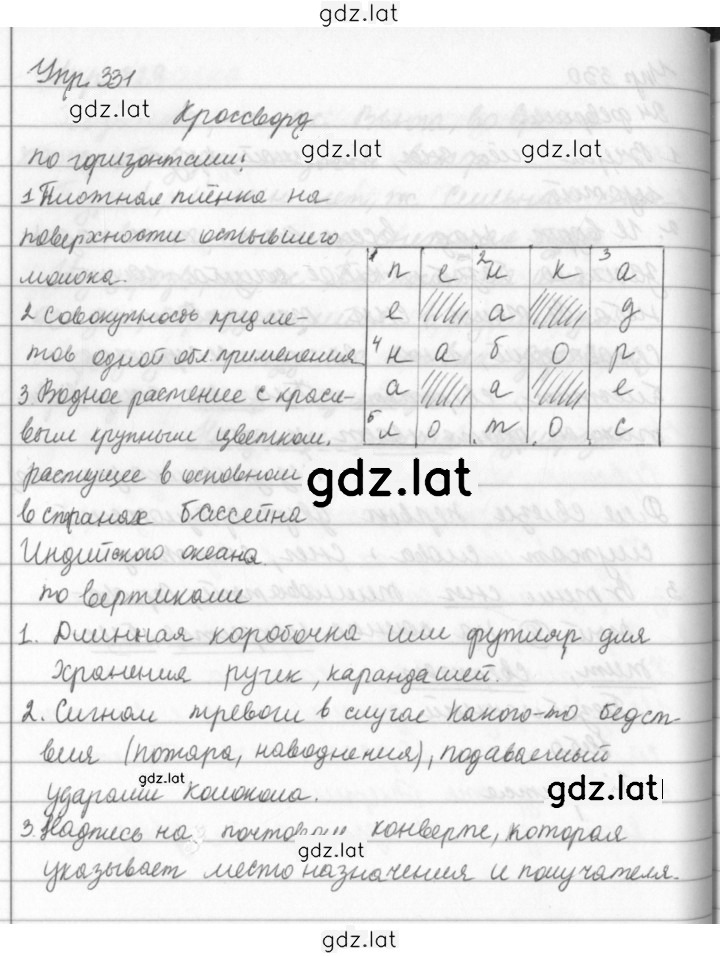 gdz.lat
Упр. 331
gdz.lat
Кроссворд
по горизонтали:
gdz.lat
gdz.lat
1 Плотная плёнка на
поверхности остывшего
молока.
2 Совокупность предме-
тов одной обл применения
3. Водное растение с краси-
вым крупным цветком,
растущее в основном
в странах бассейна
Индийского океана
1 п е 2 и к 3 а
е а д
4 н а б о р
а а е
5 л о т о с
gdz.lat
по вертикали
1. Длинная коробочка или футляр для
хранения ручек, карандашей.
2. Сигнал тревоги в случае какого-то бедст-
вия (пожара, наводнения), подаваемый
gdz.lat
ударами колокола.
gdz.lat
3. Надпись на почтовом конверте, которая
gdz.lat
указывает место назначения и получателя.
gdz.lat